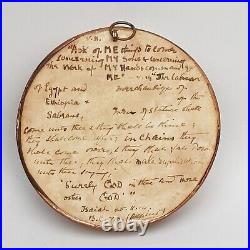 "Ask of ME things to come
concerning MY sons & concerning
the Work of MY Hands command ye
ME" "The Labour
of Egypt and merchandise of
Ethiopia & of the
Sabeans, men of stature shall
come unto thee & they shall be thine;
they shall come in Chains they
shall come over, & they shall fall down
unto thee, they shall make supplication
unto thee saying,
"Surely GOD is in thee and none
other GOD"
Isaiah
B.C.